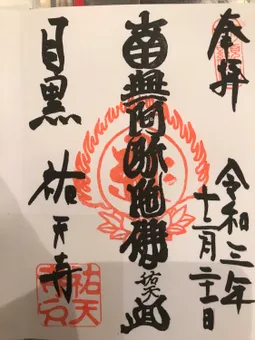 奉拝
令和三年
十二月二十二日
南無阿弥陀佛
祐天
目黒
祐天寺
祐天